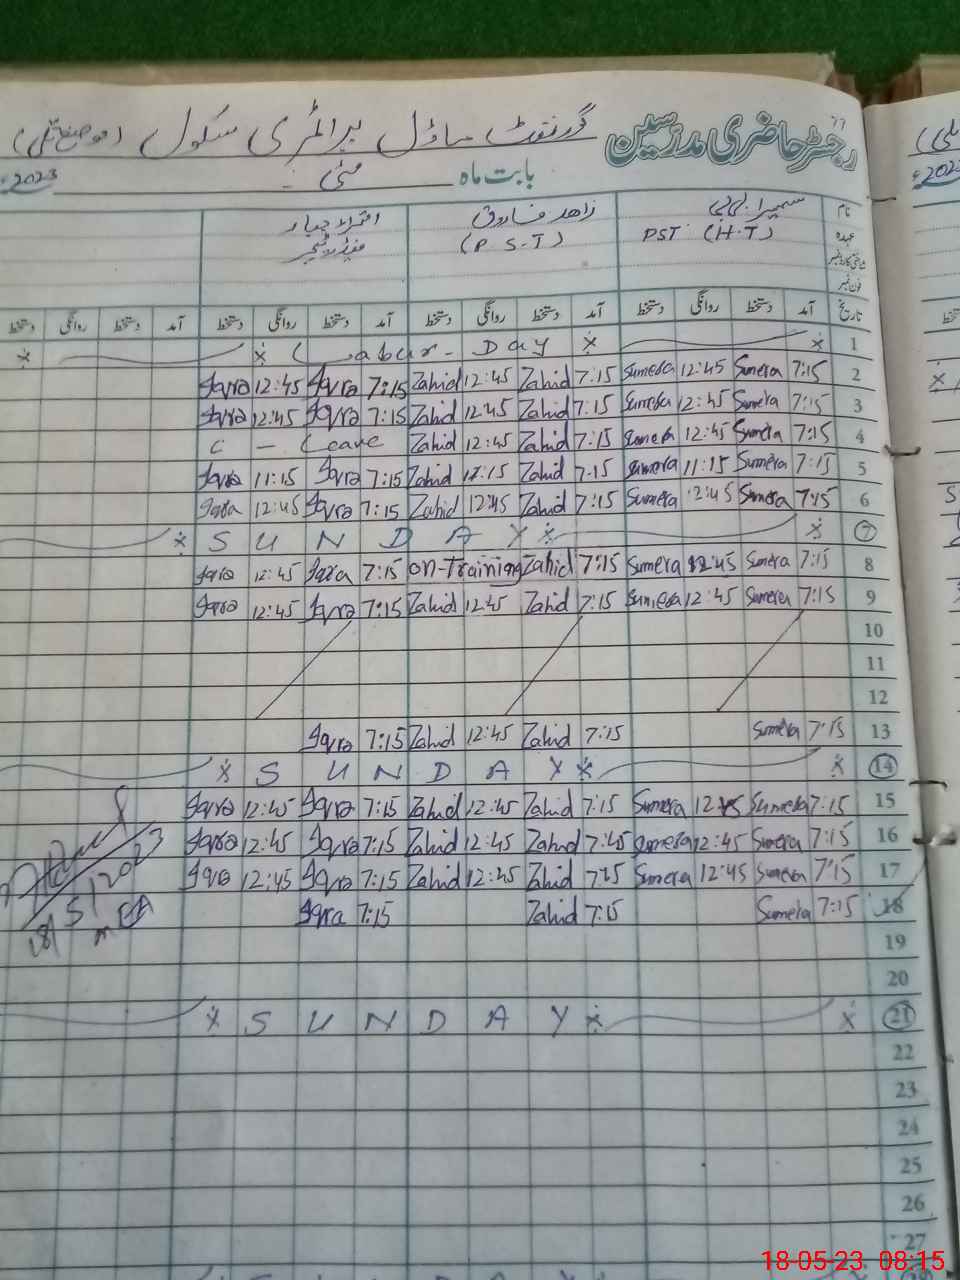 رجسٹر حاضری مدرسین گورنمنٹ ماڈل پرائمری سکول
بابت ماہ مئی 2023ء
نام سمیرا بی بی زاھد فاروق
عہدہ PST (H.T) (P.S.T)
فون نمبر
تاریخ آمد دستخط روانگی دستخط آمد دستخط روانگی دستخط آمد دستخط روانگی دستخط آمد دستخط روانگی دستخط
Labur - Day 1
Iqra 12:45 Iqra 7:15 Zahid 12:45 Zahid 7:15 Sumera 12:45 Sumera 7:15 2
Iqra 12:45 Iqra 7:15 Zahid 12:45 Zahid 7:15 Sumera 12:45 Sumera 7:15 3
C - Leave Zahid 12:45 Zahid 7:15 Sumera 12:45 Sumera 7:15 4
Iqra 11:15 Iqra 7:15 Zahid 11:15 Zahid 7:15 Sumera 11:15 Sumera 7:15 5
Iqra 12:45 Iqra 7:15 Zahid 12:45 Zahid 7:15 Sumera 12:45 Sumera 7:15 6
S U N D A Y 7
Iqra 12:45 Iqra 7:15 on-Training Zahid 7:15 Sumera 12:45 Sumera 7:15 8
Iqra 12:45 Iqra 7:15 Zahid 12:45 Zahid 7:15 Sumera 12:45 Sumera 7:15 9
10
11
12
Iqra 7:15 Zahid 12:45 Zahid 7:15 Sumera 7:15 13
S U N D A Y 14
Iqra 12:45 Iqra 7:15 Zahid 12:45 Zahid 7:15 Sumera 12:45 Sumera 7:15 15
Iqra 12:45 Iqra 7:15 Zahid 12:45 Zahid 7:45 Sumera 12:45 Sumera 7:15 16
Iqra 12:45 Iqra 7:15 Zahid 12:45 Zahid 7:15 Sumera 12:45 Sumera 7:15 17
Iqra 7:15 Zahid 7:15 Sumera 7:15 18
18/5/2023
19
20
S U N D A Y 21
22
23
24
25
26
27
18-05-23 08:15